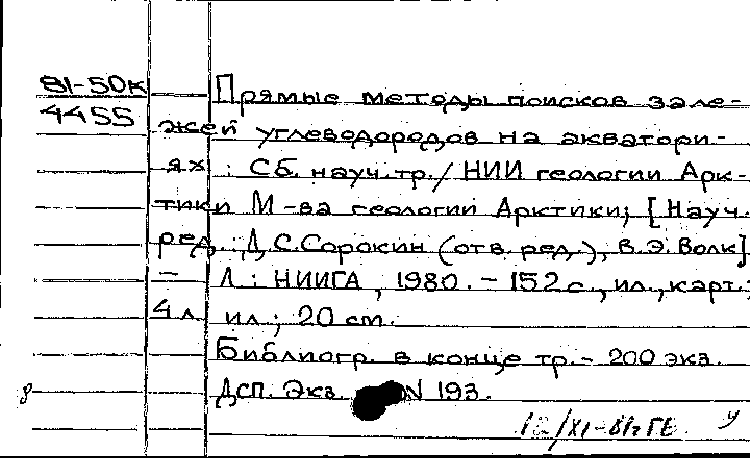 81-50к
4455
Прямые методы поисков зале-
жей углеводородов на акватори-
ях : Сб. науч. тр. / НИИ геологии Арк-
тики М-ва геологии Арктики; [Науч.
ред. : Д. С. Сорокин (отв. ред.), В. Э. Волк]
- Л. : НИИГА, 1980. - 152 с., ил., карт.;
4 л. ил.; 20 cm.
Библиогр. в конце тр. - 200 экз.
ДСП. Экз. N 193.
8
у